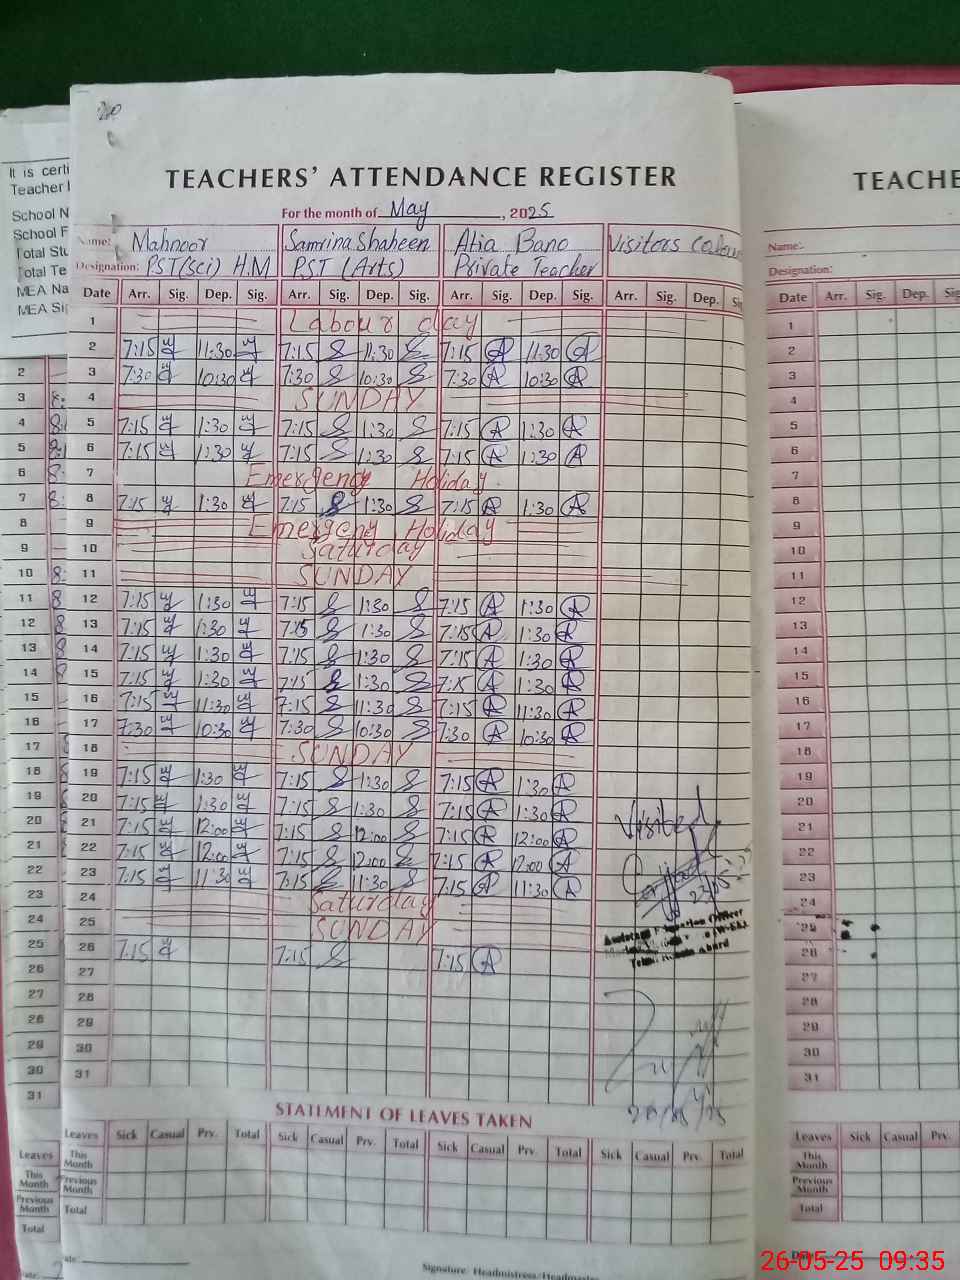 TEACHERS' ATTENDANCE REGISTER
For the month of May, 2025
Name: Mahnoor Samrina Shaheen Atia Bano Visitors
Designation: PST (Sci) H.M PST (Arts) Private Teacher
Date Arr. Sig. Dep. Sig. Arr. Sig. Dep. Sig. Arr. Sig. Dep. Sig. Arr. Sig. Dep.
1 Labour day
2 7:15 11:30 7:15 11:30 7:15 11:30
3 7:30 10:30 7:30 10:30 7:30 10:30
4 SUNDAY
5 7:15 1:30 7:15 1:30 7:15 1:30
6 7:15 1:30 7:15 1:30 7:15 1:30
7 Emergency Holiday
8 7:15 1:30 7:15 1:30 7:15 1:30
9 Emergeny Holiday
10 Saturday
11 SUNDAY
12 7:15 1:30 7:15 1:30 7:15 1:30
13 7:15 1:30 7:15 1:30 7:15 1:30
14 7:15 1:30 7:15 1:30 7:15 1:30
15 7:15 1:30 7:15 1:30 7:15 1:30
16 7:15 11:30 7:15 11:30 7:15 11:30
17 7:30 10:30 7:30 10:30 7:30 10:30
18 SUNDAY
19 7:15 1:30 7:15 1:30 7:15 1:30
20 7:15 1:30 7:15 1:30 7:15 1:30
21 7:15 12:00 7:15 12:00 7:15 12:00
22 7:15 12:00 7:15 12:00 7:15 12:00
23 7:15 11:30 7:15 11:30 7:15 11:30
24 Saturday
25 SUNDAY
26 7:15 7:15 7:15
27
28
29
30
31
Visited
STATEMENT OF LEAVES TAKEN
Leaves Sick Casual Prv. Total Sick Casual Prv. Total Sick Casual Prv. Total Sick Casual Prv. Total
This Month
Previous Month
Total
Signature: Headmistress/Headmaster
It is certi
Teacher
School N
School F
Total Stu
Total Te
MEA Na
MEA Si
2
3
4
5
6
7
8
9
10
11
12
13
14
15
16
17
18
19
20
21
22
23
24
25
26
27
28
29
30
31
Leaves
This Month
Previous Month
Total
TEACHE
Name:
Designation:
Date Arr. Sig. Dep.
1
2
3
4
5
6
7
8
9
10
11
12
13
14
15
16
17
18
19
20
21
22
23
24
25
26
27
28
29
30
31
Leaves Sick Casual Prv.
This Month
Previous Month
Total
Date:
26-05-25 09:35